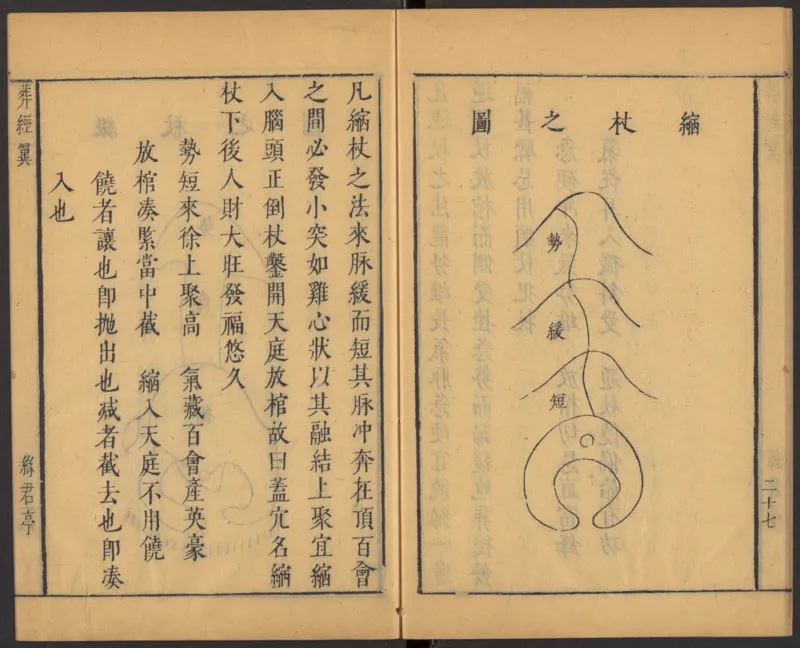 縮杖之圖
勢
緩
短
二十七
凡縮杖之法來脉緩而短其脉冲奔在頂百會
之間必發小突如雞心狀以其融結上聚宜縮
入腦頭正倒杖鑿開天庭放棺故曰蓋穴名縮
杖下後人財大旺發福悠久
勢短來徐上聚高　氣藏百會產英豪
放棺凑緊當中截　縮入天庭不用饒
饒者讓也卽抛出也減者截去也卽凑
入也
葬經翼
綠君亭